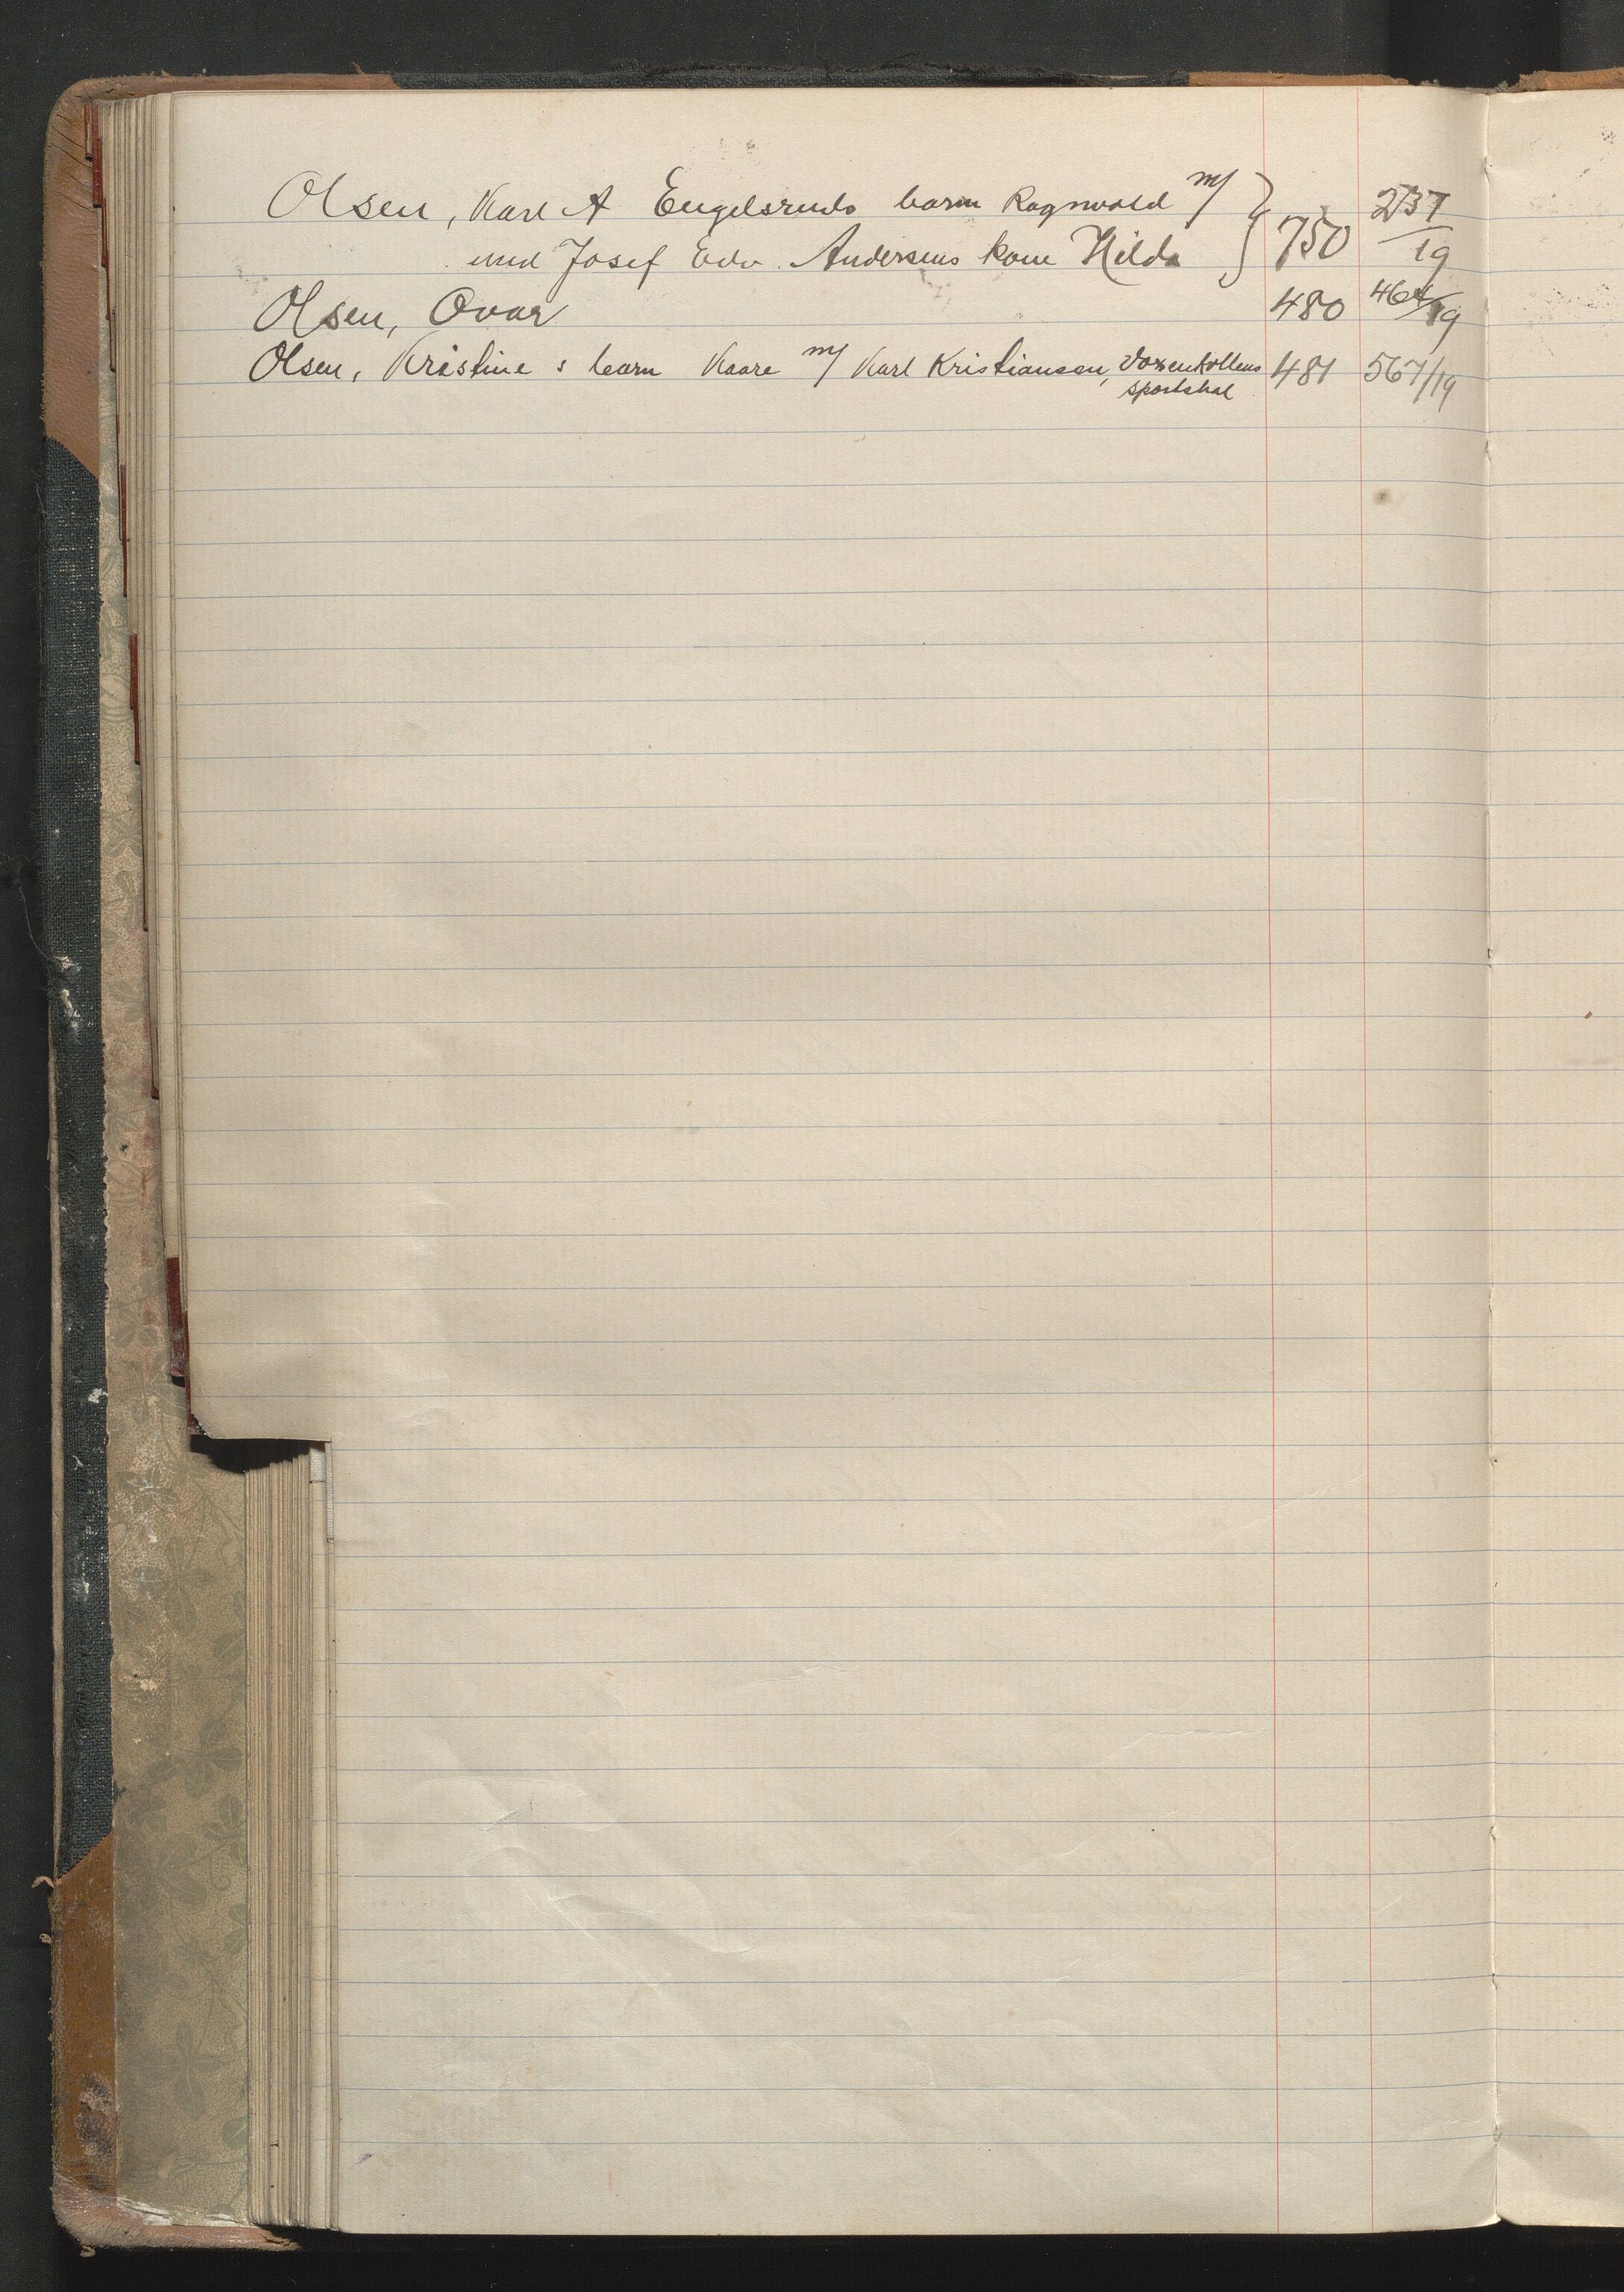 Olsen, Karl A Engelsruds barn Ragnvald m/ } 750 237/19
med Josef Edv. Andersens kone Hilda
Olsen, Ovar 480 464/19
Olsen, Kristine s barn Kaare m/ Karl Kristiansen, Voxenkollens 481 567/19
sportshal